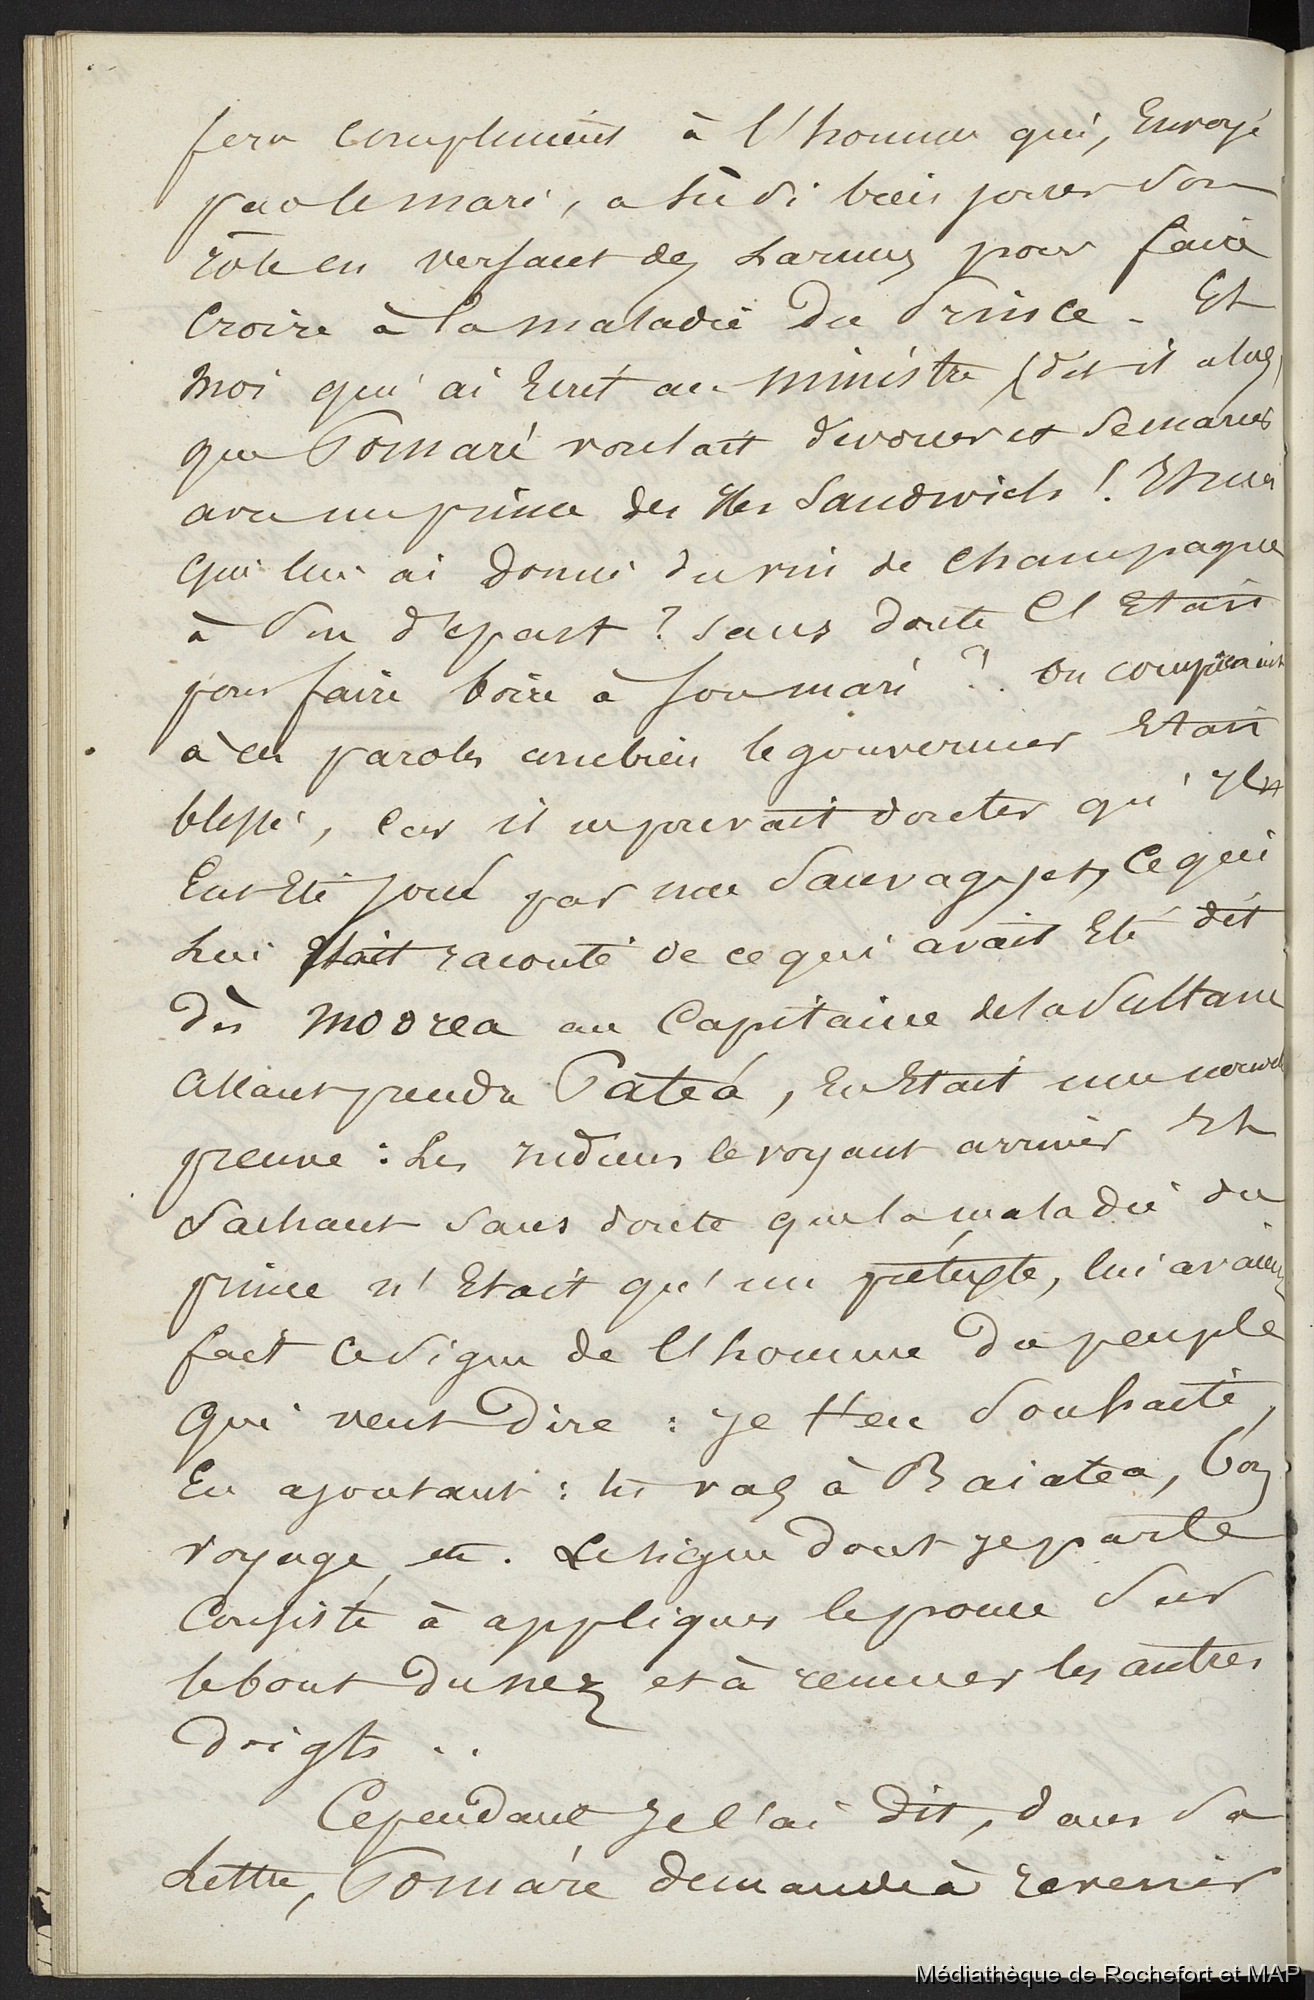 fera compliments à l'homme qui, Envoyé
par le mari, a sû si bien jouer son
rôle en versant des Larmes pour faire
Croire à la maladie Du Prince. Et
Moi qui ai Ecrit au ministre (dit il alors)
que Pomaré voulait divorcer et se marier
avec un prince des Iles Sandwich! Et moi
qui lui ai Donné du vin de Champagne
à son départ? sans doute C'Etait
pour faire boire à son mari?. on comprenait
à ces paroles combien le gouverneur Etait
blessé, Car il ne pouvait douter qu'il n'
Eut Eté joué par une Sauvagesse, Ce qui
Lui était raconté de ce qui avait Eté dit
Dès Moorea au Capitaine de la Sultane
Allant prendre Pateá, En Etait une nouvelle
preuve : Les Indiens le voyant arriver Et
Sachant Sans doute que la maladie du
prince n'Etait qu'un prétexte, lui avaient
fait Ce Signe de l'homme Du peuple
Qui veut Dire : Je t'en Souhaite,
En ajoutant : tu vas à Raiatea, bon
voyage etc. Le signe dont je parle
Consiste à appliquer le pouce Sur
le bout Du nez et à remuer les autres
Doigts ..
Cependant Je l'ai Dit, dans Sa
Lettre, Pomaré demande à revenir
Médiathèque de Rochefort et MAP